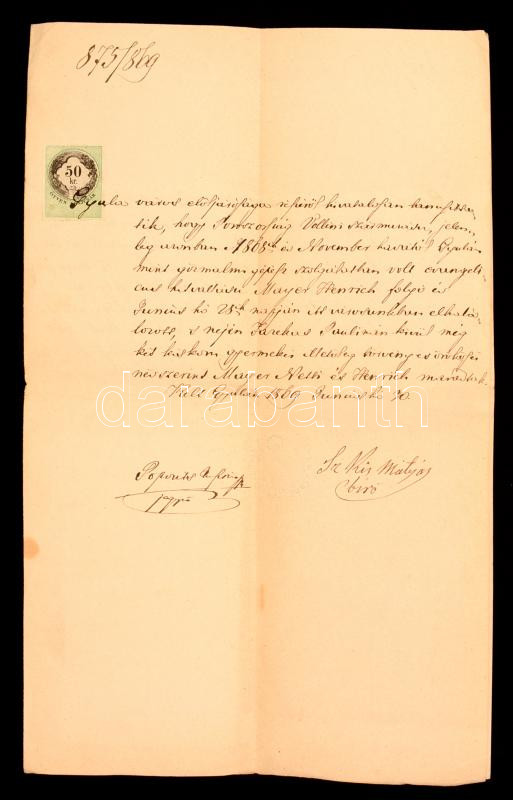 875/869
50
kr.
Gyula város elöljárósága részéről hivatalosan bizonyítta-
tik, hogy Poroszország születésü, jelen-
leg azonban 1868ik év November havától Gyulán
mint gőzmalmi gépész szolgálatban volt evangeli-
cus hitvallásu Mayer Henrich folyó év
Junius hó 25ik napján itt városunkban elhalá-
lozott, s nején Farkas Paulinán kívül még
két kiskoru gyermekei törvényes örökösei
névszerint Mayer Netti és Henrich maradtak.
Kelt Gyulán 1869 Junius hó 30.
darabanth
Popovits
jegyző
Sz Kis Mátyás
biró